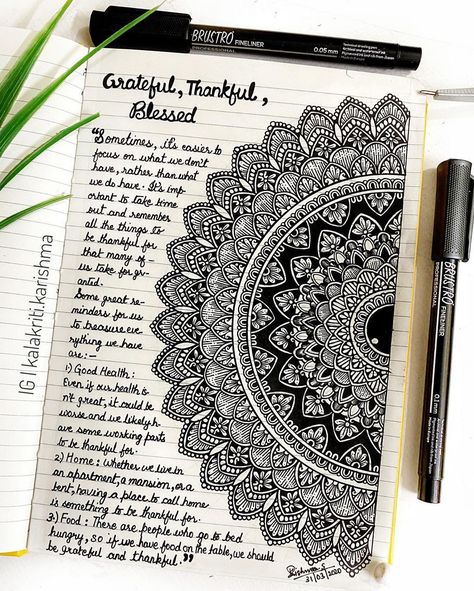 BRUSTRO FINELINER
PROFESSIONAL
0.05 mm
Technical drawing pen
Grateful, Thankful,
Blessed
"Sometimes, it's easier to
focus on what we don't
have, rather than what
we do have. It's imp-
ortant to take time
out and remember
all the things to
be thankful for
that many of-
us take for gr-
anted.
Some great re-
minders for us
to treasure eve-
rything we have
are:-
1) Good Health:
Even if our health is
n't great, it could be
worse and we likely h-
ave some working parts
to be thankful for.
2) Home: Whether we live in
an apartment, a mansion, or a
tent, having a place to call home
is something to be thankful for.
3) Food: There are people who go to bed
hungry, so if we have food on the table, we should
be grateful and thankful."
31/03/2020
IG | kalakriti.karishma
BRUSTRO
FINELINER
PROFESSIONAL
0.1 mm